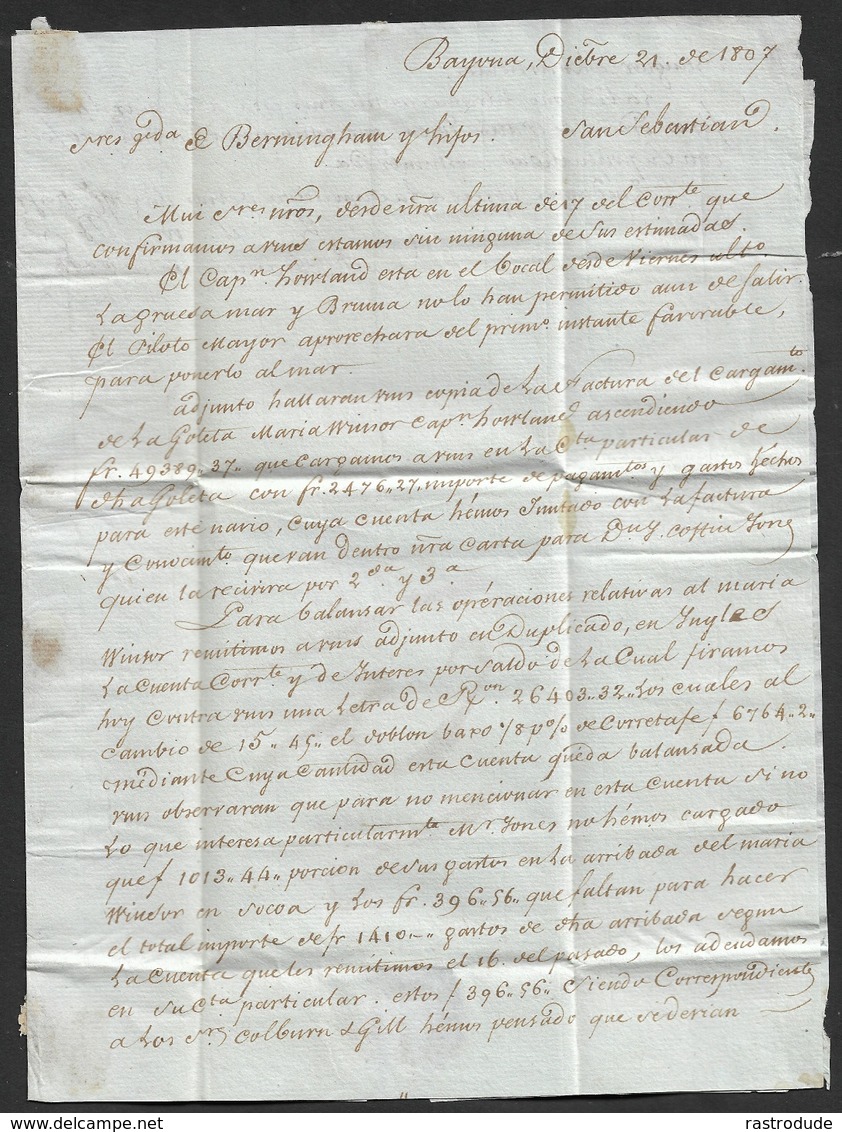 Bayona, Diciẽbre 21. de 1807
Sres. vda de Bermingham y hijos. San Sebastian
Mui Sres nrõs, desde nrã ultima de 17 del Corrte que
confirmamos a vms estamos sin ninguna de sus estimadas.
El Capn. Howland esta en el Bocal desde Viernes ulto.
La gruesa mar y Bruma no lo han permitido aun de salir.
El Piloto Mayor aprovechara del primo. instante favorable,
para ponerlo al mar.
adjunto hallaran vms copia de La Factura del Cargamto.
de La Goleta Maria Winsor Capn. Howland ascendiendo
fr. 49389,, 37,, que cargamos a vms en La Cta particular de
dha Goleta con fr. 2476,, 27,, importe de pagamtos y gastos hechos
para este navio, cuya cuenta hémos Juntado con La factura
y Conocimto. que van dentro nrã carta para Dn. J. Coffin Jones
quien la recivira por 2da y 3a.
Para balansar las opéraciones relativas al maria
Winsor remitimos a vms adjunto en Duplicado, en Ingles
La Cuenta Corrte y de Interes por saldo de La Cual tiramos
hoy contra vms una Letra de Rvon 26403,, 32,, Los cuales al
cambio de 15,, 45,, el doblon baxo 1/8 p% de Corretaje f 6764,, 2,,
médiante Cuya Cantidad esta Cuenta quéda balansada.
vms observaran que para no mencionar en esta cuenta si no
Lo que interesa particularmte Mr. Jones no hémos cargado
que f 1013,, 44,, porcion de sus gastos en La arribada del maria
Winsor en Socoa y Los fr. 396,, 56,, que faltan para hacer
el total importe de fr 1410,,— gastos de dha arribada segun
La Cuenta que les remitimos el 16. del pasado, los adeudamos
en su Cta particular. estos f 396,, 56,, Siendo Correspondiente
a Los Srs. Colburn & Gill hémos pensado que sederian
rastrodude